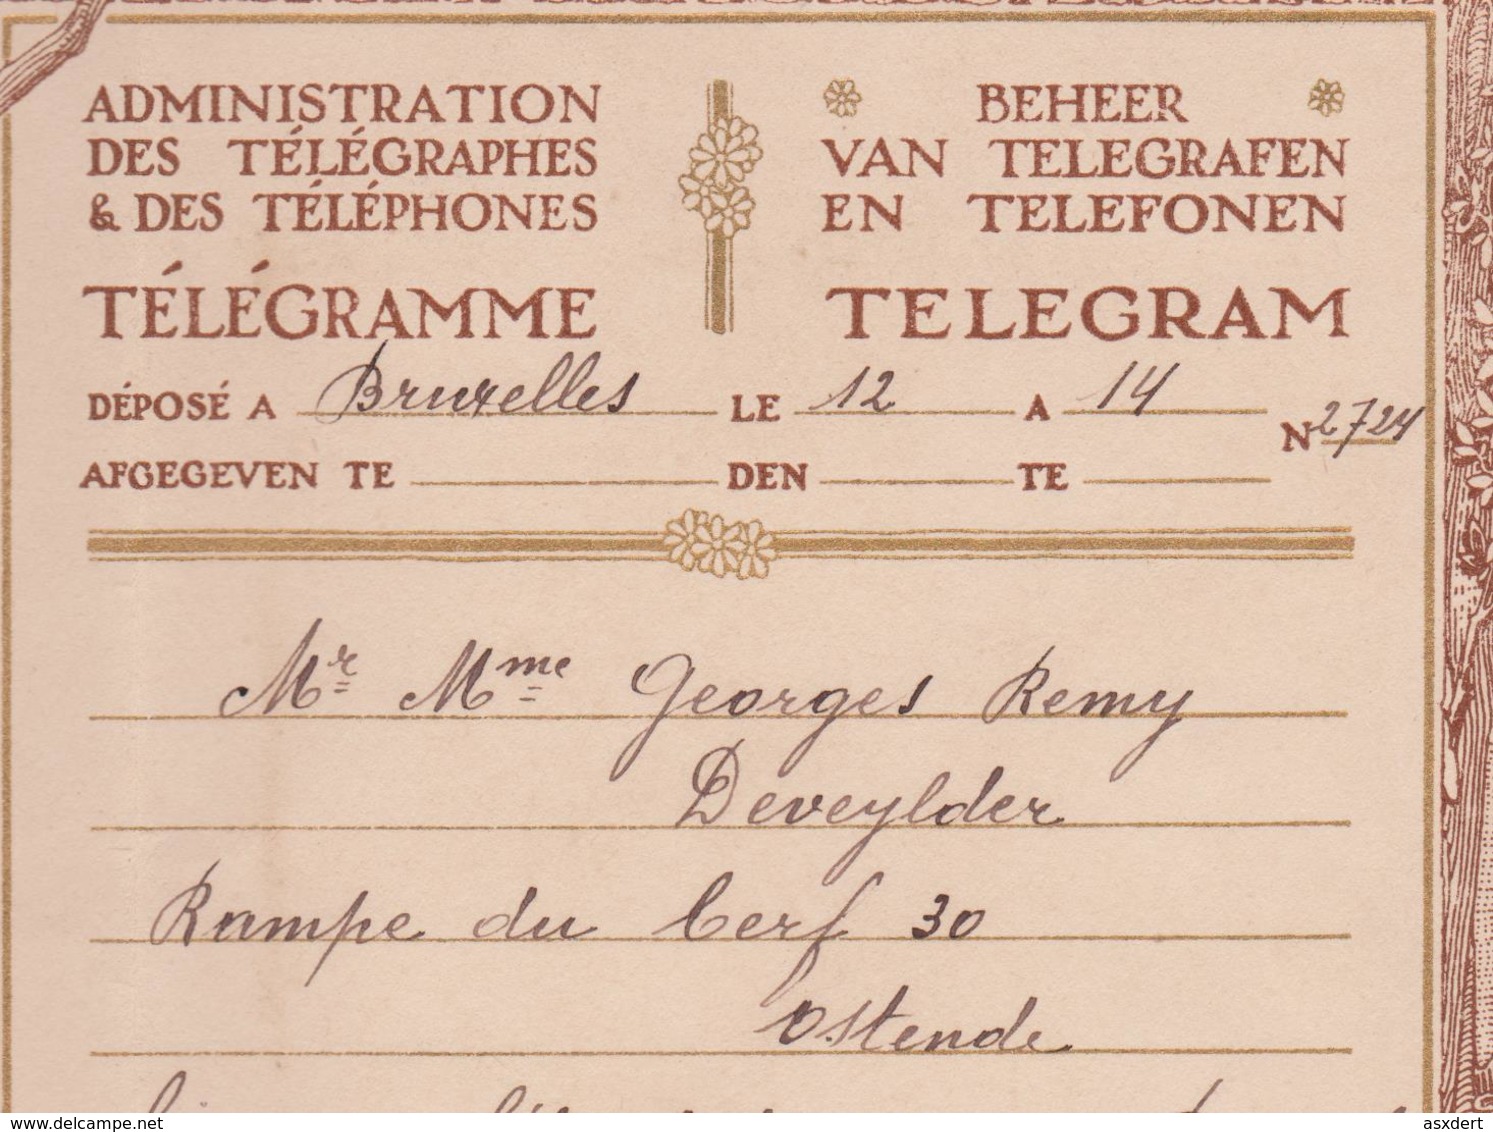 ADMINISTRATION
DES TÉLÉGRAPHES
& DES TÉLÉPHONES
TÉLÉGRAMME
BEHEER
VAN TELEGRAFEN
EN TELEFONEN
TELEGRAM
DÉPOSÉ A Bruxelles LE 12 A 14 N 2724
AFGEGEVEN TE DEN TE
Mr Mme Georges Remy
Deveylder
Rampe du Cerf 30
Ostende
www.delcampe.net
asxdert